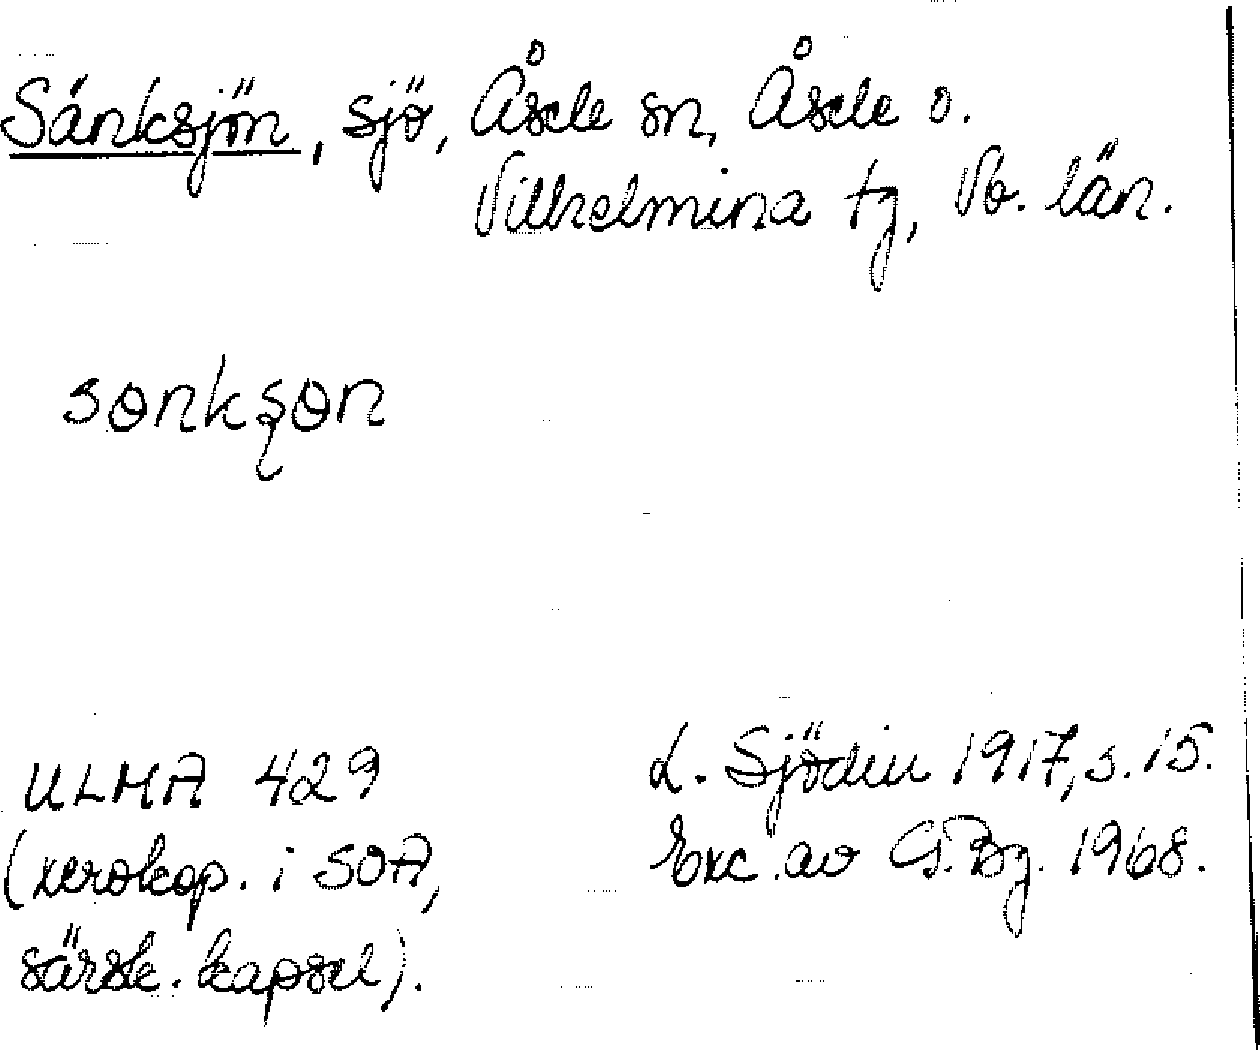 Sänksjön, sjö, Åsele sn, Åsele o.
Vilhelmina tg, Vb. län.
sɵnkʂɵn
ULMA 429
(xerokop. i SOA,
särsk. kapsel).
L. Sjödin 1917, s. 15.
Exc. av G. Bg. 1968.